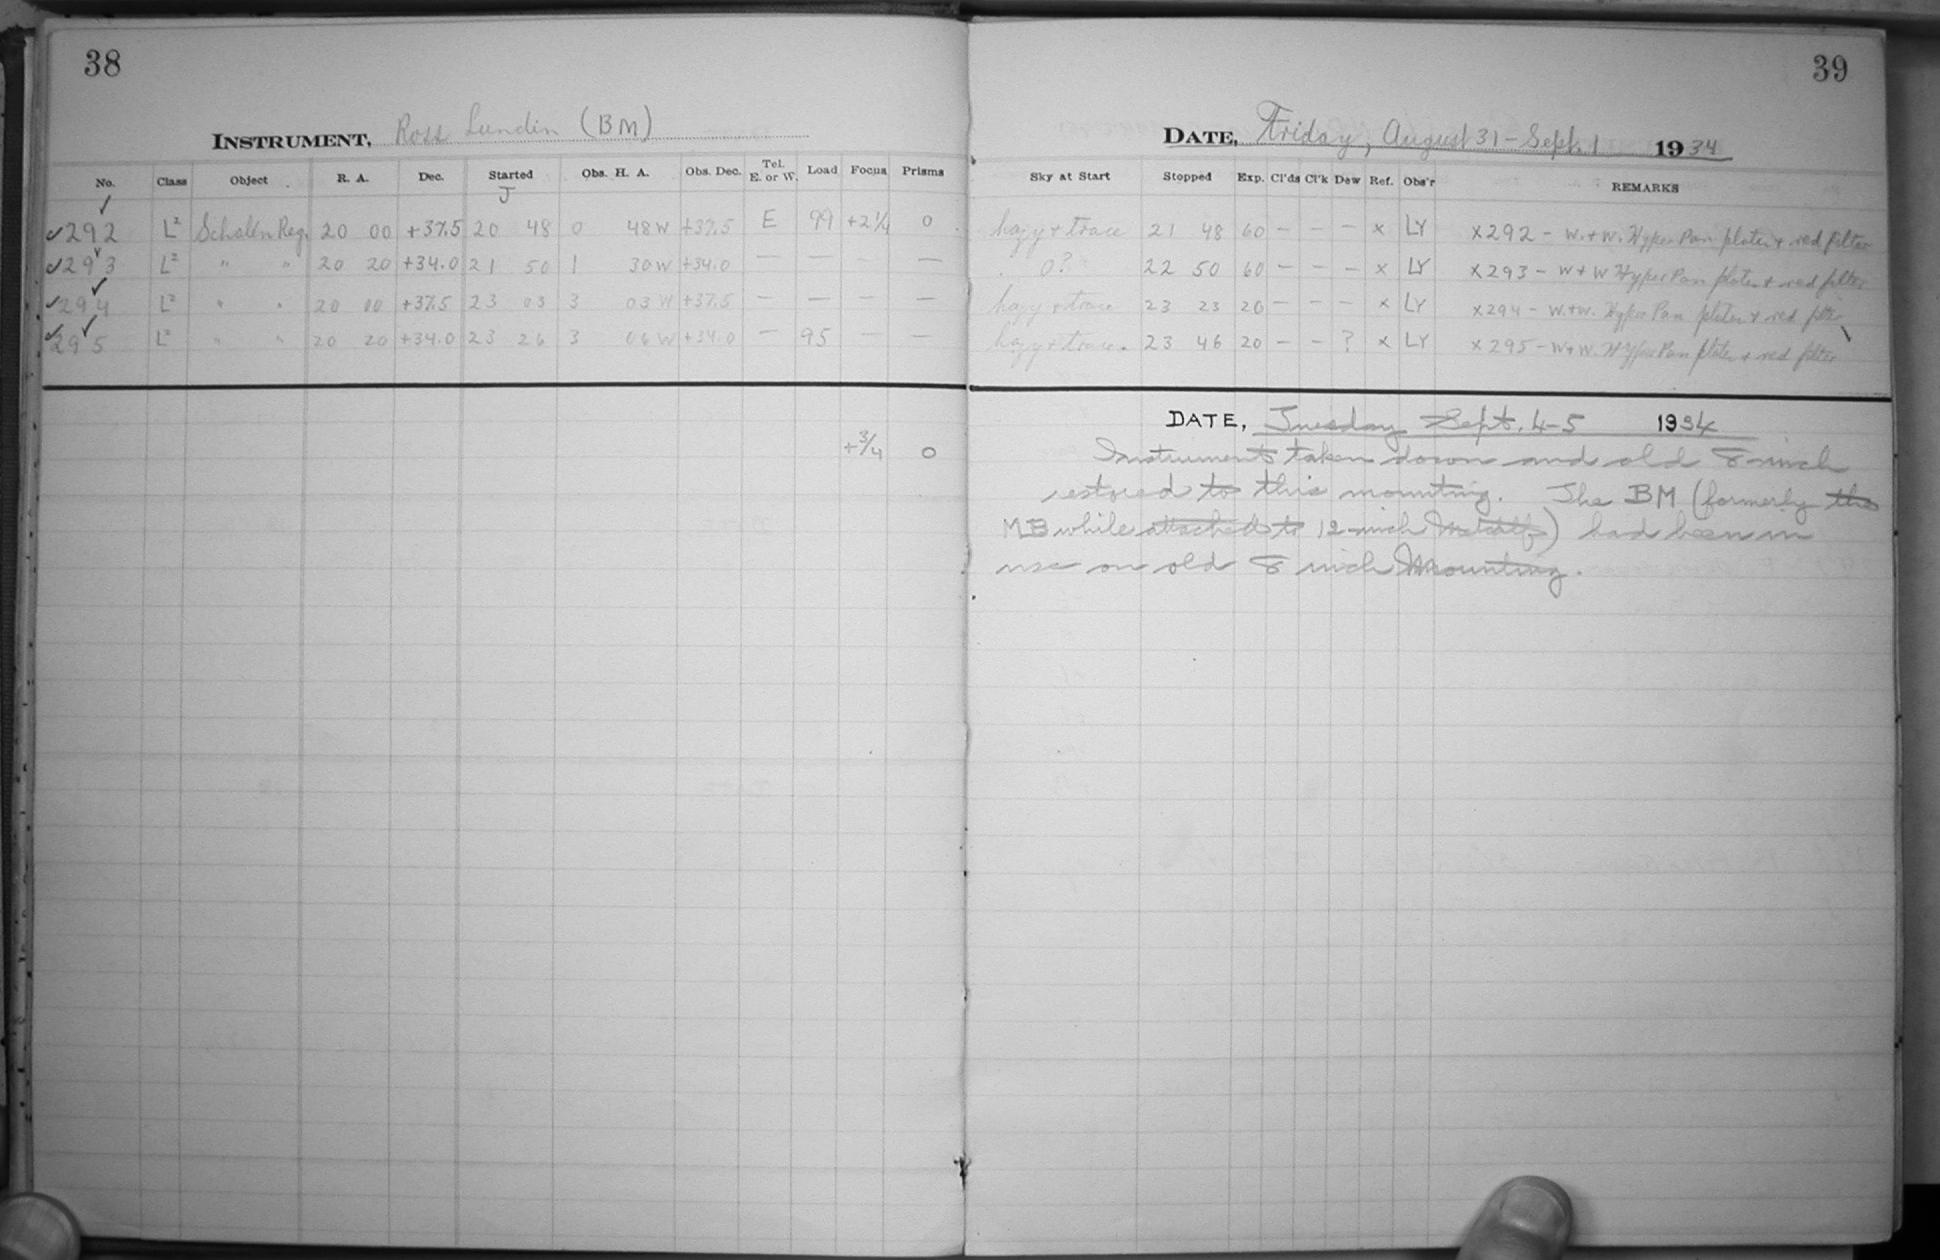 38
INSTRUMENT, Ross Lundin (BM)
No. Class Object R. A. Dec. Started Obs. H. A. Obs. Dec. Tel. E. or W. Load Focus Prisms
J
✓
✓292 L² Schalén Reg. 20 00 +37.5 20 48 0 48W +37.5 E 99 +2¼ 0
✓293 ✓ L² " " 20 20 +34.0 21 50 1 30W +34.0 — — — —
✓294 ✓ L² " " 20 00 +37.5 23 03 3 03W +37.5 — — — —
✓295 ✓ L² " " 20 20 +34.0 23 26 3 06W +34.0 — 95 — —
+3/4 0
39
DATE, Friday, August 31 - Sept. 1 1934
Sky at Start Stopped Exp. Cl'ds Cl'k Dew Ref. Obs'r REMARKS
hazy + trace 21 48 60 — — — x LY X292 - W.+W. Hyper Pan plates + red filter
0? 22 50 60 — — — x LY X293 - W+W Hyper Pan plates + red filter
hazy + trace 23 23 20 — — — x LY X294 - W.+W. Hyper Pan plates + red filter
hazy + trace. 23 46 20 — — ? x LY X295 - W+W. Hyper Pan plates + red filter
DATE, Tuesday Sept. 4-5 1934
Instrument taken down and old 8 inch
restored to this mounting. The BM (formerly the
MB while attached to 12-inch Metcalf) had been in
use on old 8 inch Mounting.